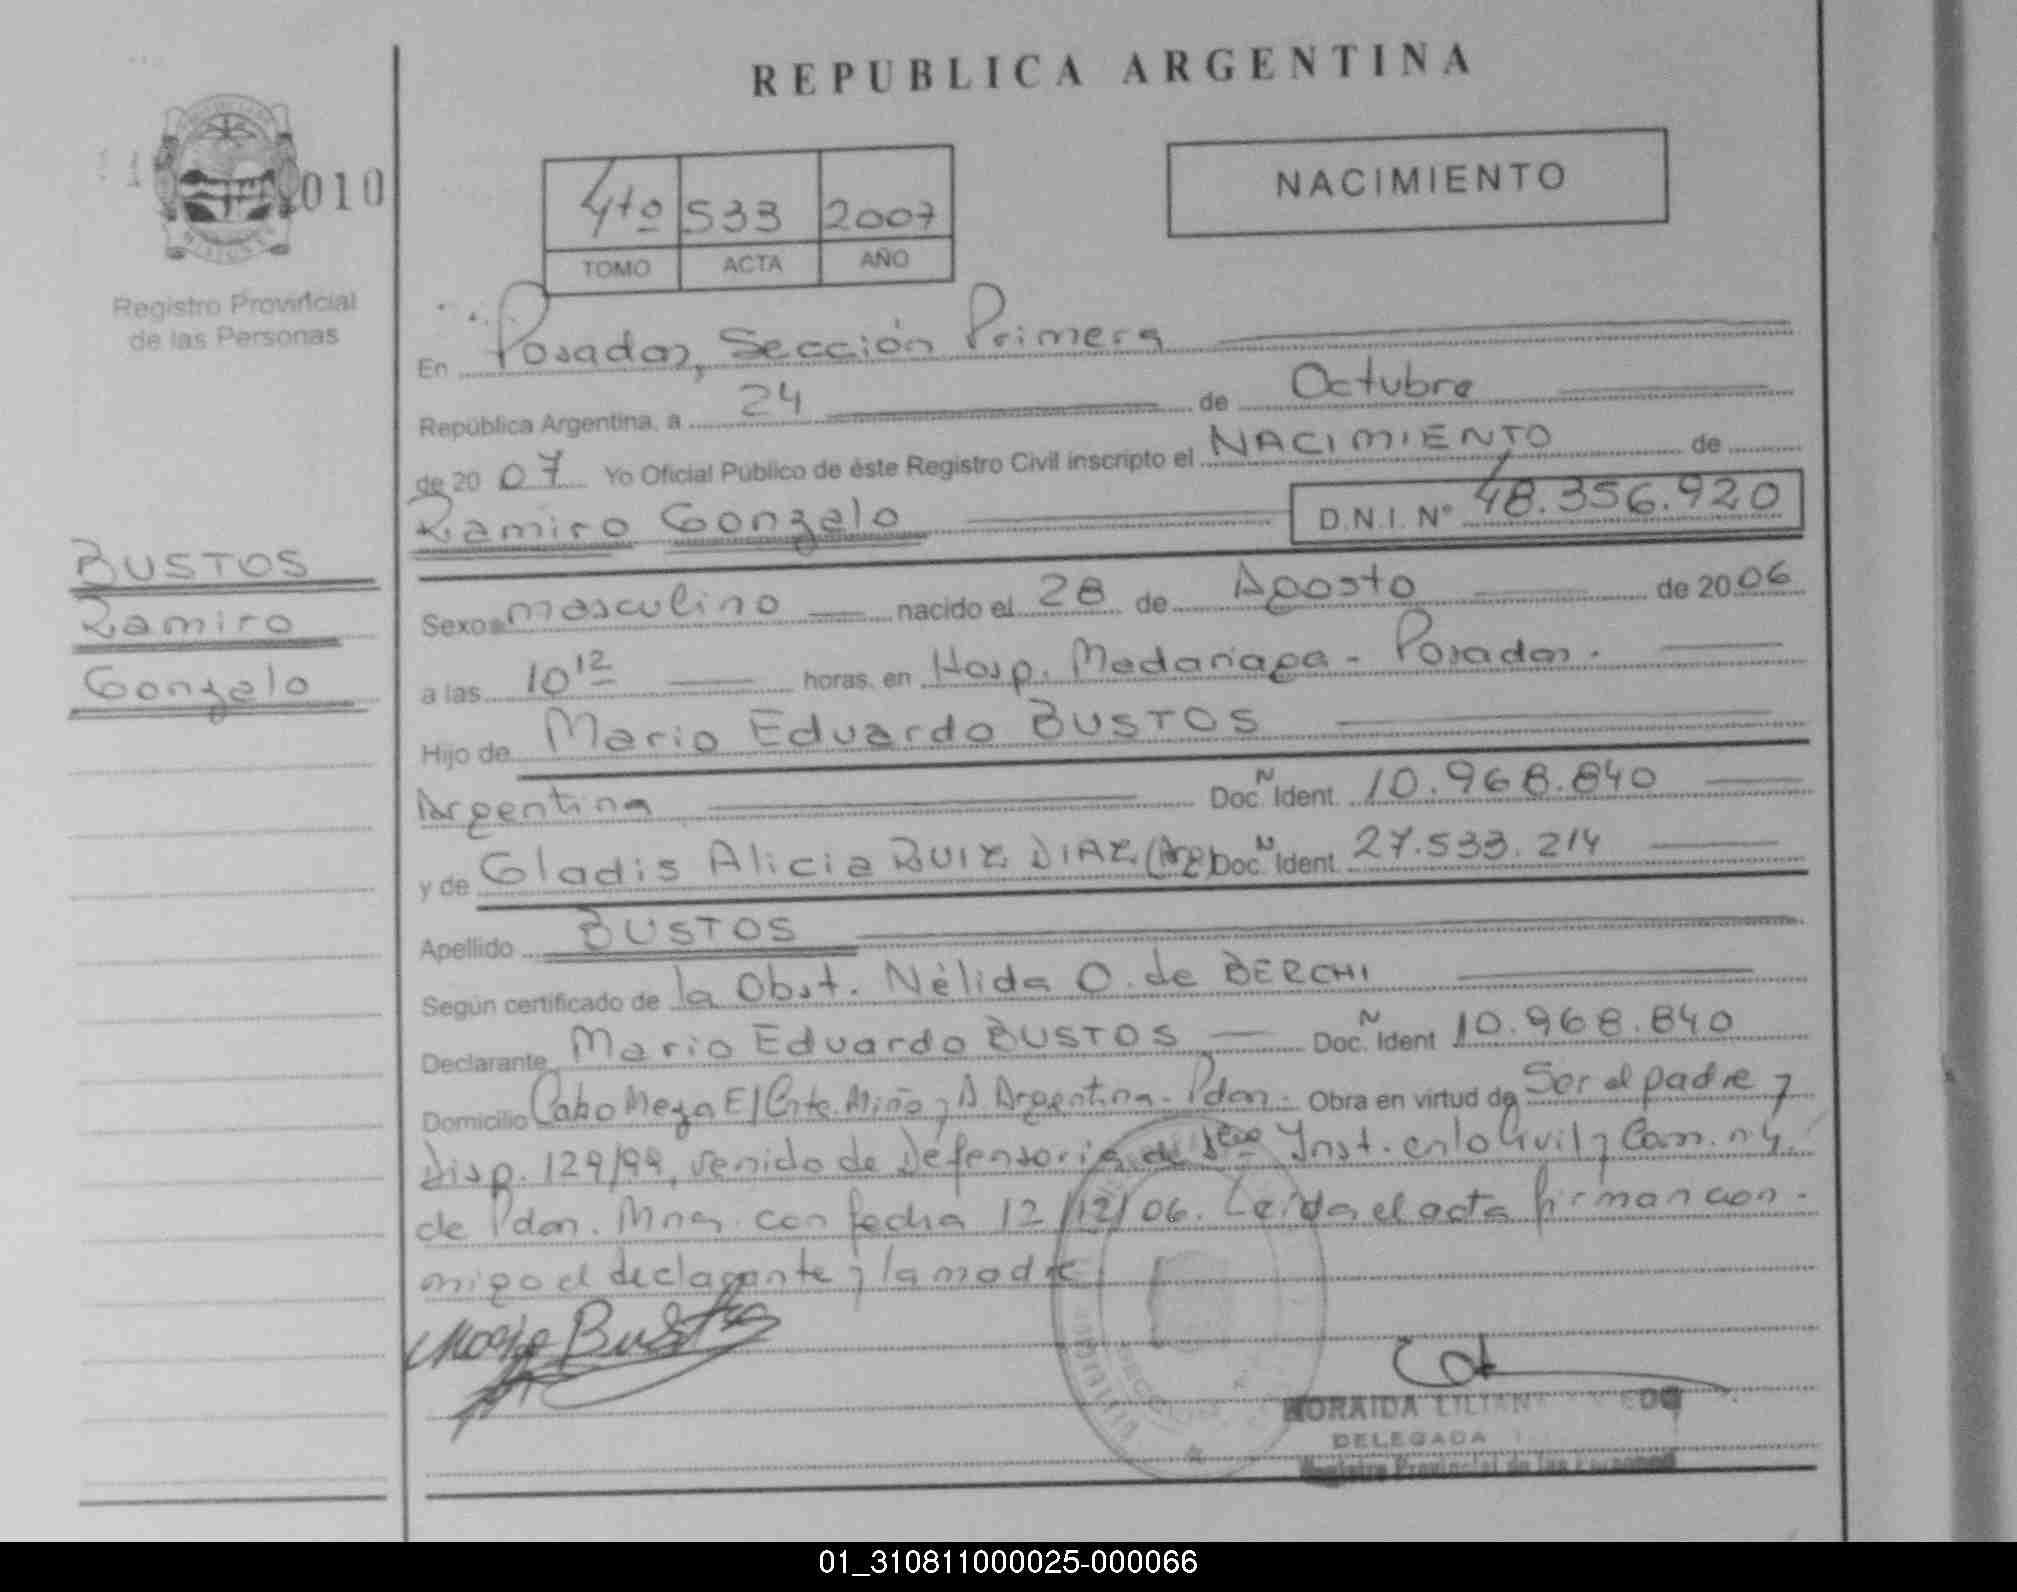 REPUBLICA ARGENTINA
010
Registro Provincial
de las Personas
4to 533 2007
TOMO ACTA AÑO
NACIMIENTO
En Posadas, Sección Primera
República Argentina, a 24 de Octubre
de 2007 Yo Oficial Público de éste Registro Civil inscripto el NACIMIENTO de
Ramiro Gonzalo D.N.I. N° 48.356.920
BUSTOS
Ramiro
Gonzalo
Sexo masculino nacido el 28 de Agosto de 2006
a las 10 12 horas, en Hosp. Madariaga - Posadas.
Hijo de Mario Eduardo BUSTOS
Argentina Doc. N Ident. 10.968.840
y de Gladis Alicia RUIZ DIAZ (Arg) Doc. N Ident. 27.533.214
Apellido BUSTOS
Según certificado de la Obst. Nélida O. de BERCHI
Declarante Mario Eduardo BUSTOS Doc. N Ident 10.968.840
Domicilio Cabo Meza E/ Cnte. Miño y A Argentina - Pdas - Obra en virtud de Ser el padre y
Disp. 129/99, venido de Defensoría de Inst. en lo Civil y Com. n 4.
de Pdas. Mnes. con fecha 12/12/06. Leída el acta firman con-
migo el declarante y la madre
Mario Bustos
NORAIDA LILIAN
DELEGADA
Registro Provincial de las Personas
01_310811000025-000066